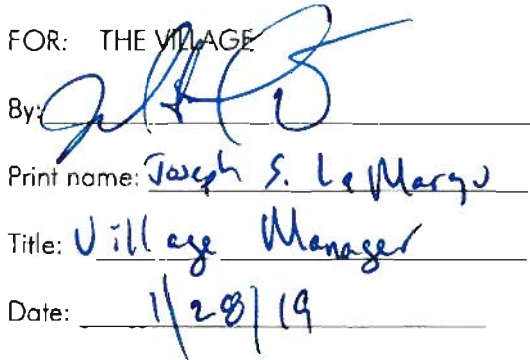 FOR: THE VILLAGE
By:
Print name: Joseph S. LaMargo
Title: Village Manager
Date: 1/28/19